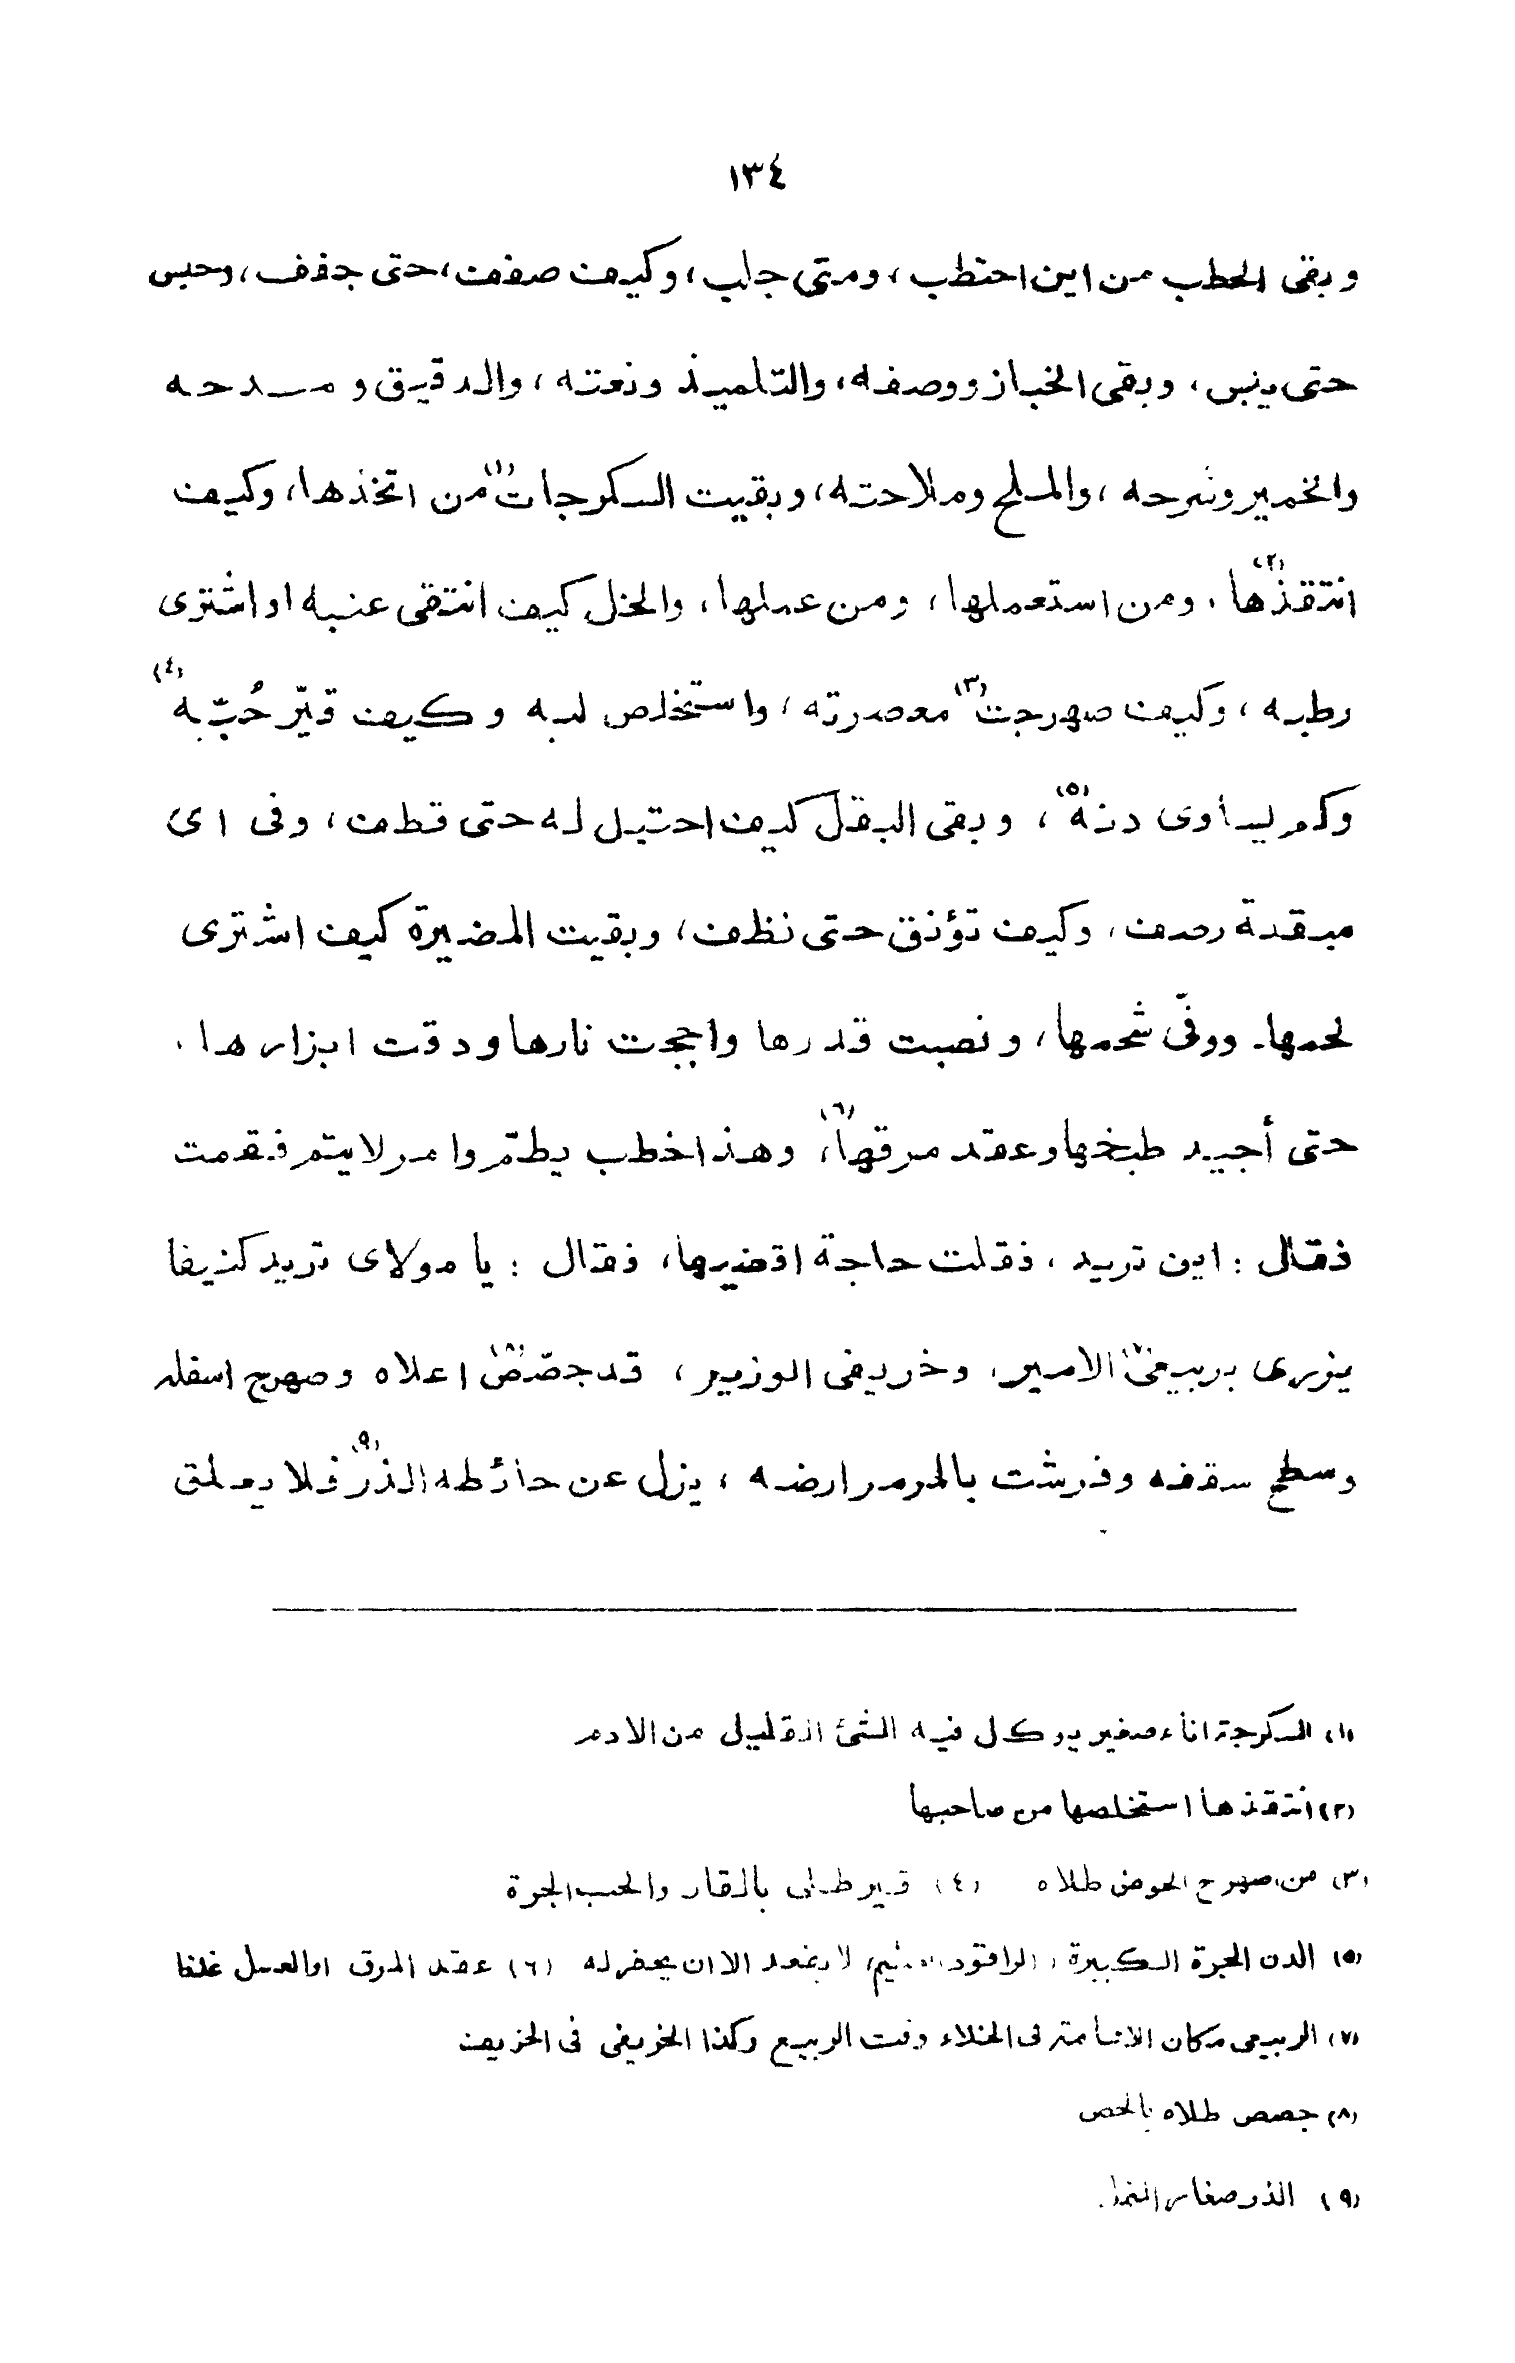 ١٣٤
وبقى الحطب من اين احتطب، ومتى جلب، وكيف صفف، حتى جفف، وحبس
حتى ينبس، وبقى الخباز ووصفه، والتلميذ ونعته، والدقيق ومدحه
والخمير وشرحه، والملح وملاحته، وبقيت السكرجات (١) من اتخذها، وكيف
انتقذها (٢)، ومن استعملها، ومن عملها، والخل كيف انتقى عنبه او اشترى
رطبه، وكيف صهرجت (٣) معصرته، واستخلص لبه وكيف قيّر حُبّه (٤)
وكم يساوى دنه (٥)، وبقى البقل كيف احتيل له حتى قطف، وفى اى
مبقدة رصف، وكيف تؤنق حتى نظف، وبقيت المضيرة كيف اشترى
لحمها. ووفّى شحمها، ونصبت قدرها واججت نارها ودقت ابزارها.
حتى أجيد طبخها وعقد مرقها (٦)، وهذا خطب يطمّ وامر لايتم فقمت
فقال : اين تريد، فقلت حاجة اقضيها، فقال : يا مولاى تريد كنيفا
يزرى بربيعى (٧) الامير، وخريفى الوزير، قد جصّص (٨) اعلاه وصهرج اسفله
وسطح سقفه وفرشت بالمرمر ارضه، يزل عن حائطه الذر (٩) فلا يعلق
(١) السكرجة اناء صغير يوكل فيه الشئ القليل من الادم
(٢) انتقذها استخلصها من صاحبها
(٣) من صهرج الحوض طلاه (٤) قير طلى بالقار والحب الجرة
(٥) الدن الجرة الكبيرة، الراقود لا يقعد الا ان يحفر له (٦) عقد المرق او العسل غلظا
(٧) الربيعى مكان الاقامة فى الخلاء وقت الربيع وكذا الخريفى فى الخريف
(٨) جصص طلاه بالجص
(٩) الذر صغار النمل.